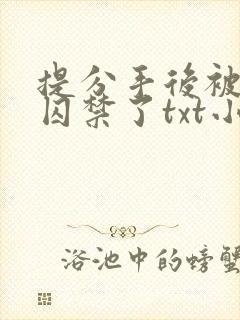 提分手後被
囚禁了txt小
浴池中的螃蟹